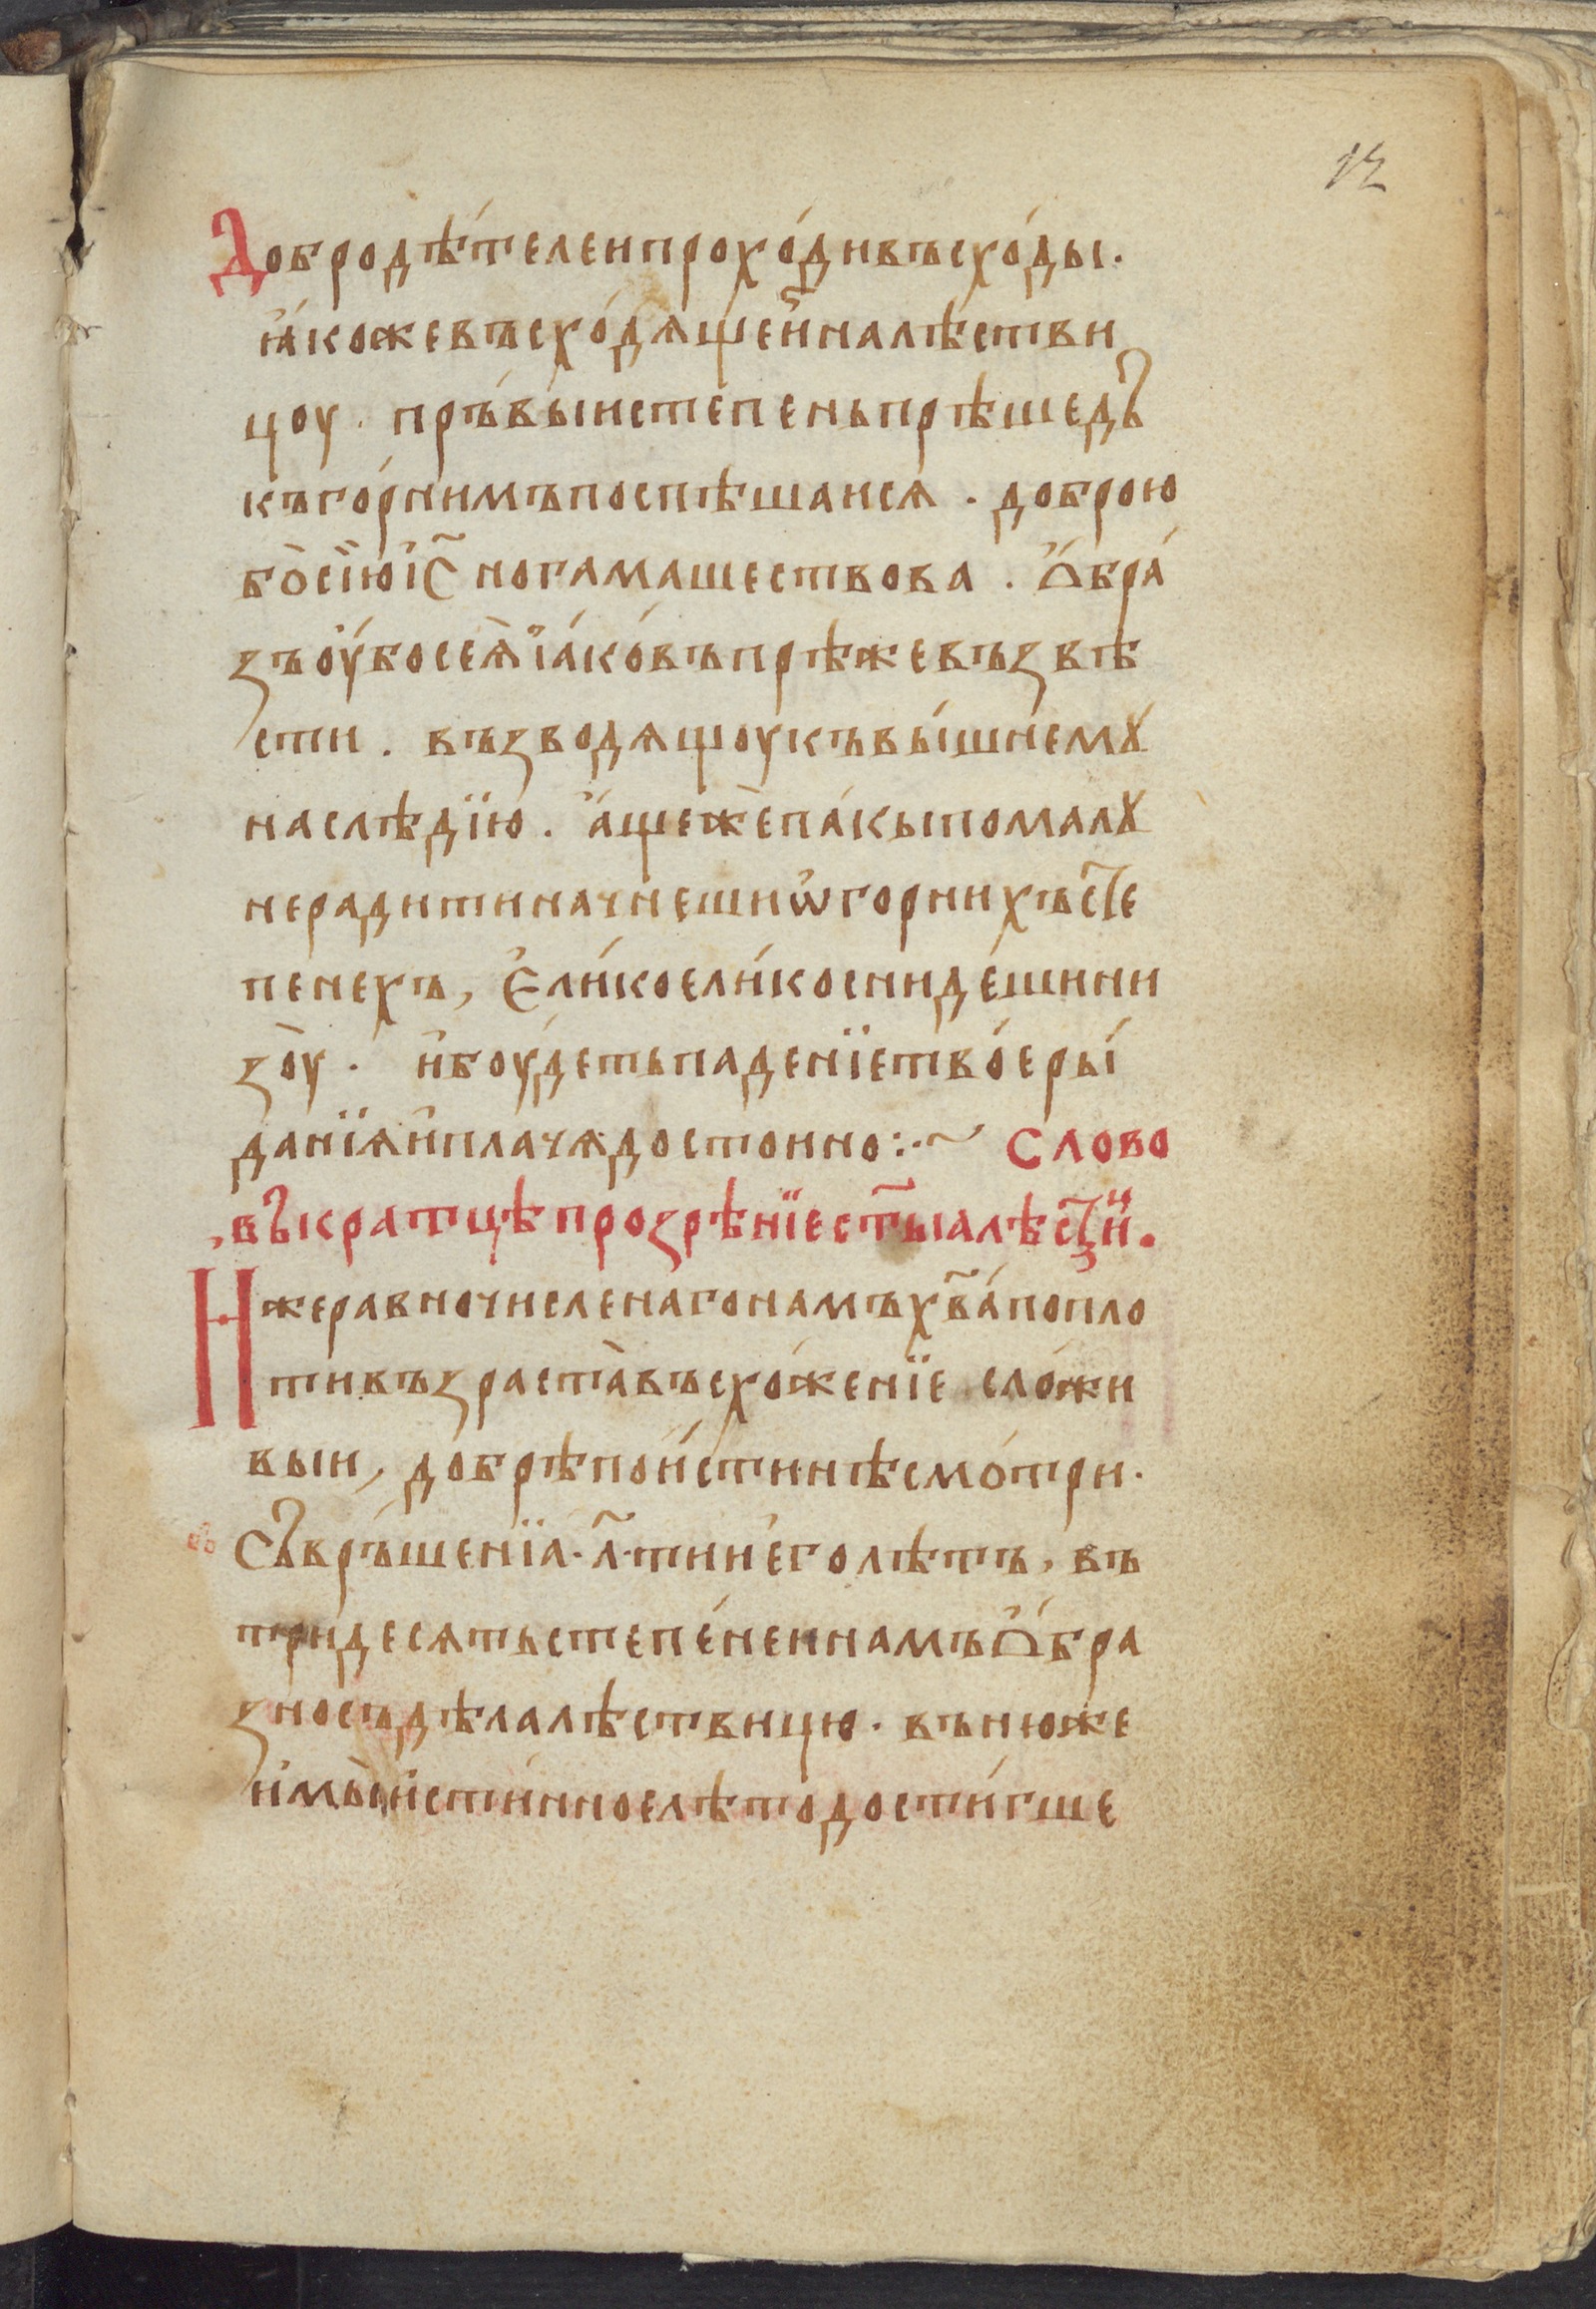 12
Добродѣ́телеи прохо́ди въсхо́ды.
ꙗ́коже въсхо́дѧщеи҆ на лѣстви
цоу . пръ́вы́и степень прѣшедъ
къ го́рнимъ поспѣшаисѧ . доброю
бо сїю і҆с҃ ногама шествова . Ѻ҆бра́
зъ оу҆́бо сеѧ̀ і҆а́ковъ прѣже възвѣ
сти . възводѧщоу къ вы́шнемꙋ́
наслѣдїю . а҆́ще же па́кы помалꙋ
нерадити начнеши ѡ҆ горнихъ сте
пенехъ, Є҆ли́ко ели́ко снид́еши ни
зоу̀ . и҆ боу́деть паденїе тво́е ры́
данїѧ и҆ плачѧ достоино :·~ Слово
, въкратцѣ прозрѣнїе ст҃ыа лѣстⷰ҇и .
Иже равночисленаго намъ х҃ва́ по пло
ти въ́зраста въсхо́женїе сло́жи
выи, до́брѣ пои́стинѣ смо́три.
Съвръ́шенїа · л҃ · тии е҆го лѣтъ, въ
тридесѧть степе́неи намъ Ѻ҆́бра
зно съдѣла лѣствицю . въ нюже
и҆мы и́стинное лѣто дости́гше